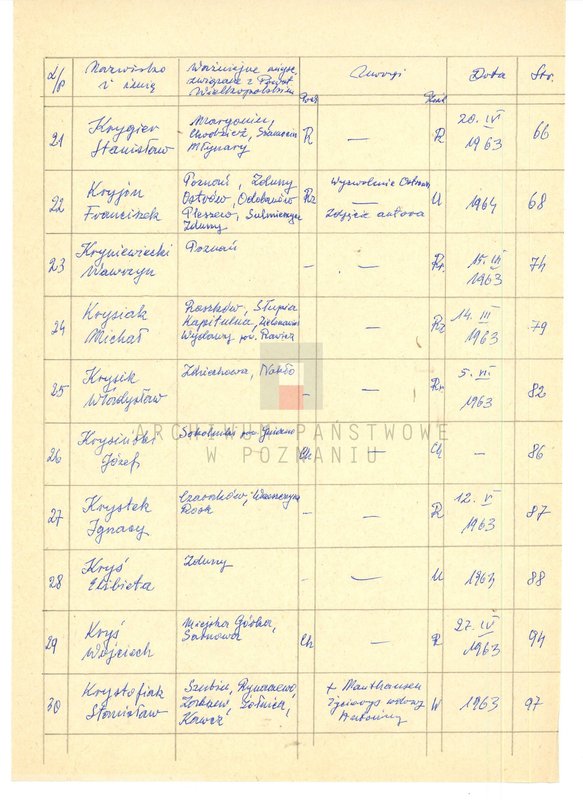 L/p Nazwisko i imię Ważniejsze miejsc. związane z Powst. Wielkopolskim Uwagi Data Str.
21 Krygier Stanisław Margonin, Chodzież, Szamocin Młynary R — R 20. IV 1963 66
22 Kryjön Franciszek Poznań, Zduny Ostrów, Odolanów Pleszew, Sulmierzyce Zduny Rz Wyzwolenie Ostrowa — Zdjęcie autora U 1964 68
23 Kryniewiecki Wawrzyn Poznań – — Rr. 15. III 1963 74
24 Krysiak Michał Roszków, Słupia Kapitulna, Zielonawieś Wydawy pow. Rawicz — Rz 14. III 1963 79
25 Krysik Władysław Zdziechowa, Nakło – — Rr 5. VI 1963 82
26 Krysiński Józef Sokolniki pow. Gniezno Ch — Ch – 86
27 Krystek Ignacy Czarnków, Wieleń – — R 12. V 1963 87
28 Kryś Elżbieta Zduny – — U 1963 88
29 Kryś Wojciech Miejska Górka, Sarnowa Ch — R 27. IV 1963 94
30 Krystofiak Stanisław Szubin, Rynarzewo, Żnin, Łabiszyn, Kcynia + Mauthausen Życiorys wdowy Antoniny W 1963 97
ARCHIWUM PAŃSTWOWE
W POZNANIU